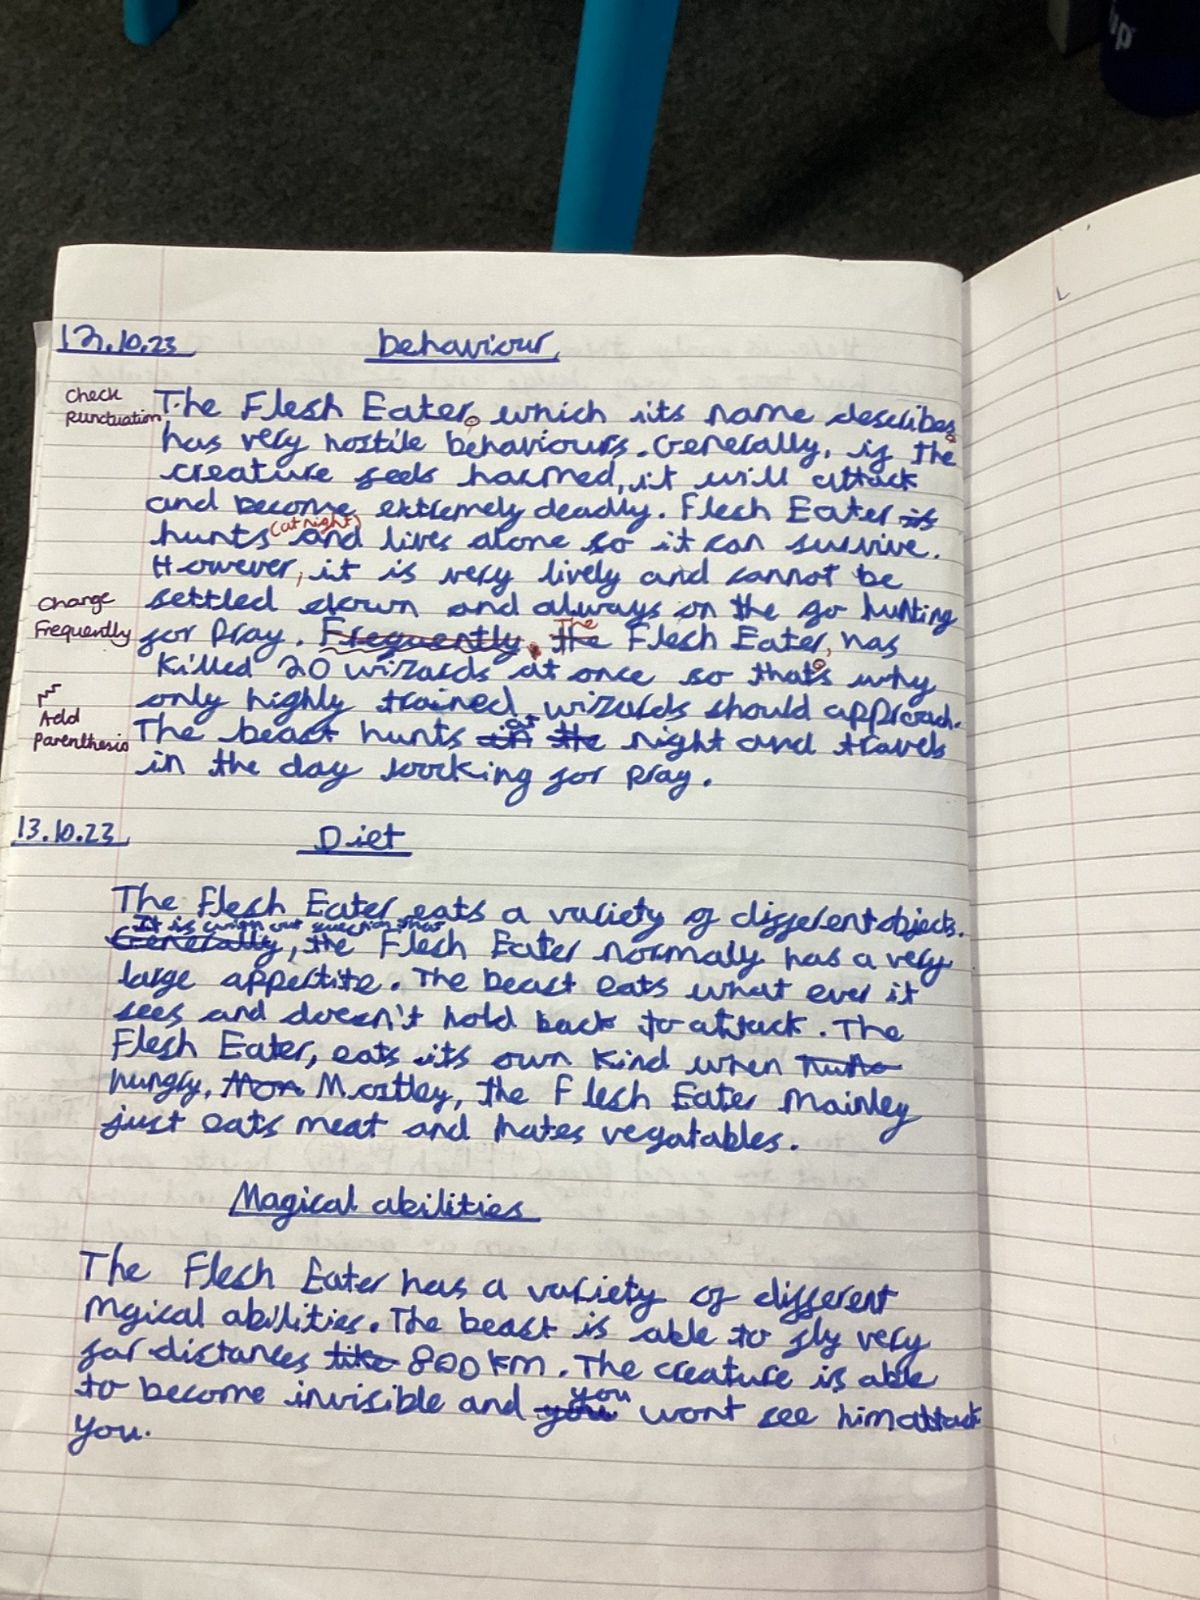 up
13.10.23 behaviour
Check
Punctuation
The Flesh Eater, which its name describes,
has very hostile behaviours. Generally, if the
creature feels harmed, it will attack
and become extremely deadly. Flesh Eater is
(at night)
hunts and lives alone so it can survive.
However, it is very lively and cannot be
Change
Frequently
settled down and always on the go hunting
for pray. Frequently, the The Flesh Eater, has
killed 20 wizards at once so that's why
only highly trained wizards should approach.
Add
Parenthesis
The beast hunts in the at night and travels
in the day loocking for pray.
13.10.23 Diet
The Flesh Eater eats a variety of different objects.
It is that
Generally, the Flesh Eater normaly has a very
large appetite. The beast eats what ever it
sees and doesn't hold back to attack. The
Flesh Eater, eats its own kind when
hungry. Mon Mostley, the Flesh Eater Mainley
just eats meat and hates vegatables.
Magical abilities
The Flesh Eater has a variety of different
Mgical abilities. The beast is able to fly very
far distances like 800 KM. The creature is able
to become invisible and you you wont see him attack
you.